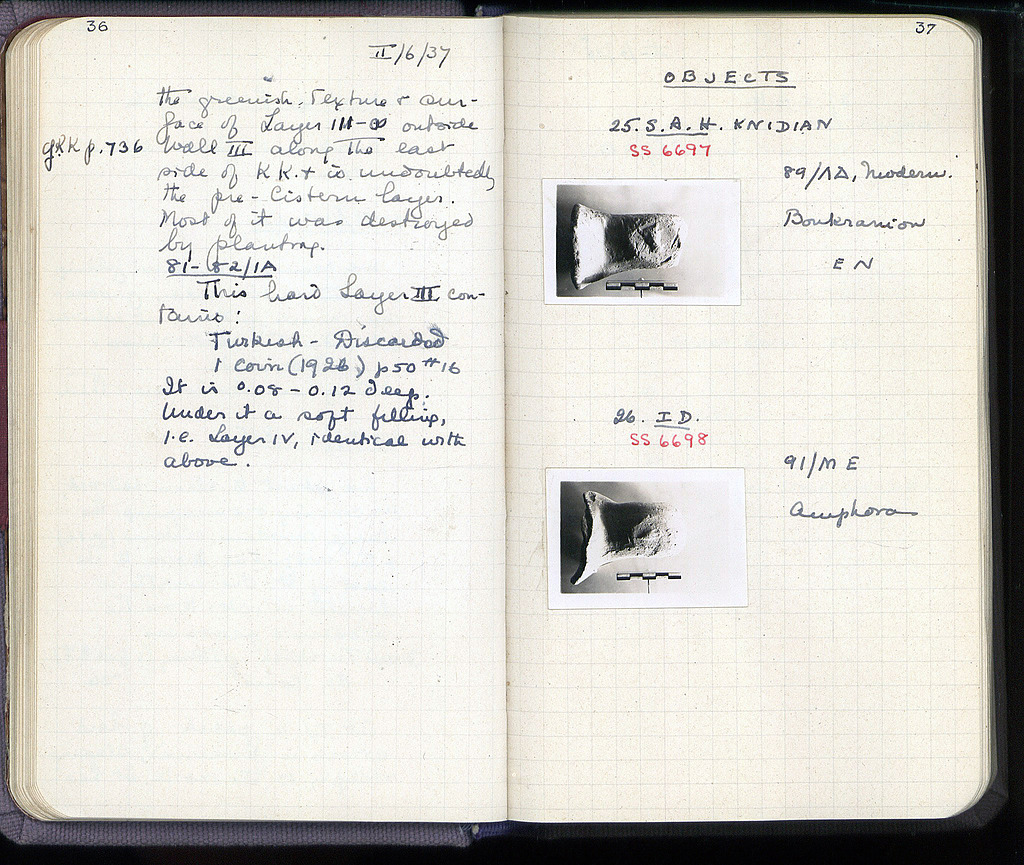 36
II/6/37
the greenish. Texture & sur-
face of Layer III-∞ outside
cf. KK p. 736 Wall III along the east
side of KK. It is undoubtedly
the pre-Cistern layer.
Most of it was destroyed
by planting.
81-82/IA
This hard Layer III con-
tains:
Turkish - Discarded
1 coin (1926) p50 #16
It is 0.08 - 0.12 deep.
Under it a soft filling,
i.e. Layer IV, identical with
above.
37
OBJECTS
25. S.A.H. KNIDIAN
SS 6697
89/ΛΔ, Modern.
Boukranion
EN
26. ID.
SS 6698
91/ME
Amphora